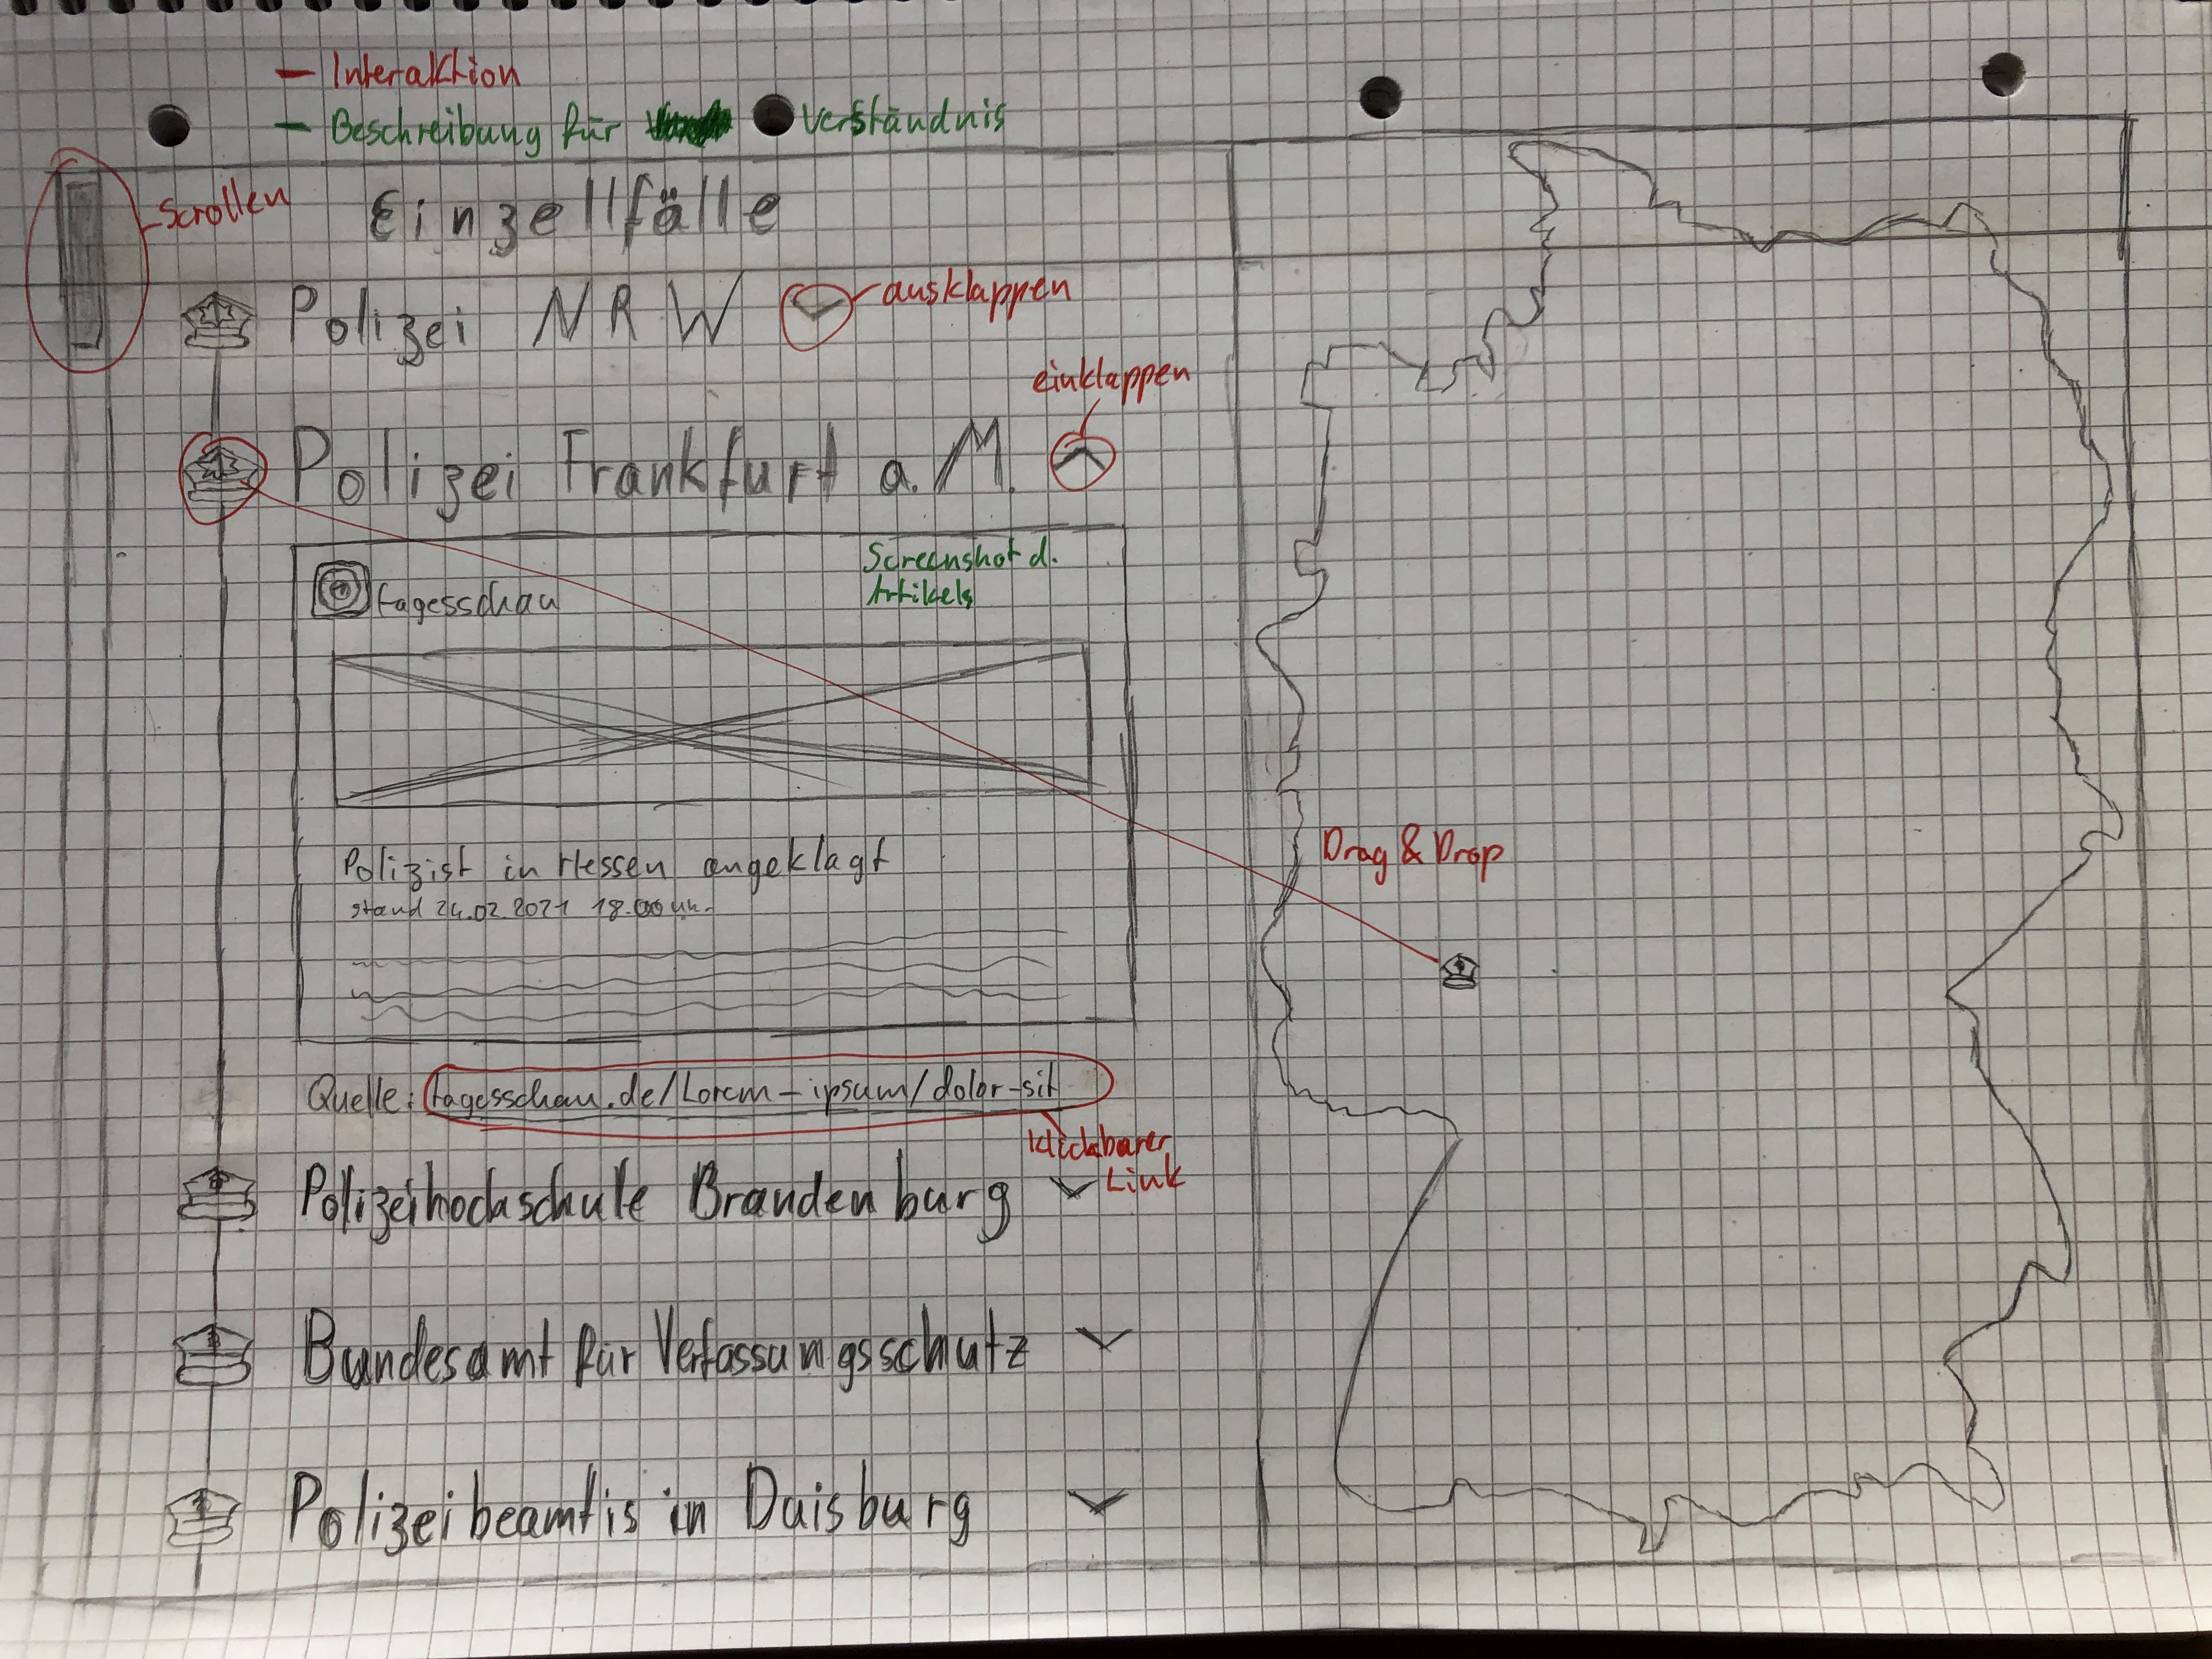 – Interaktion
– Beschreibung für Verständnis
Scrollen
Einzellfälle
Polizei NRW
ausklappen
einklappen
Polizei Frankfurt a.M.
Screenshot d.
Artikels
tagesschau
Polizist in Hessen angeklagt
stand 24.02.2021 18.00 Uh.
Drag & Drop
Quelle: tagesschau.de/Lorem-ipsum/dolor-sit
klickbarer
Link
Polizeihochschule Brandenburg
Bundesamt für Verfassungsschutz
Polizeibeamtis in Duisburg